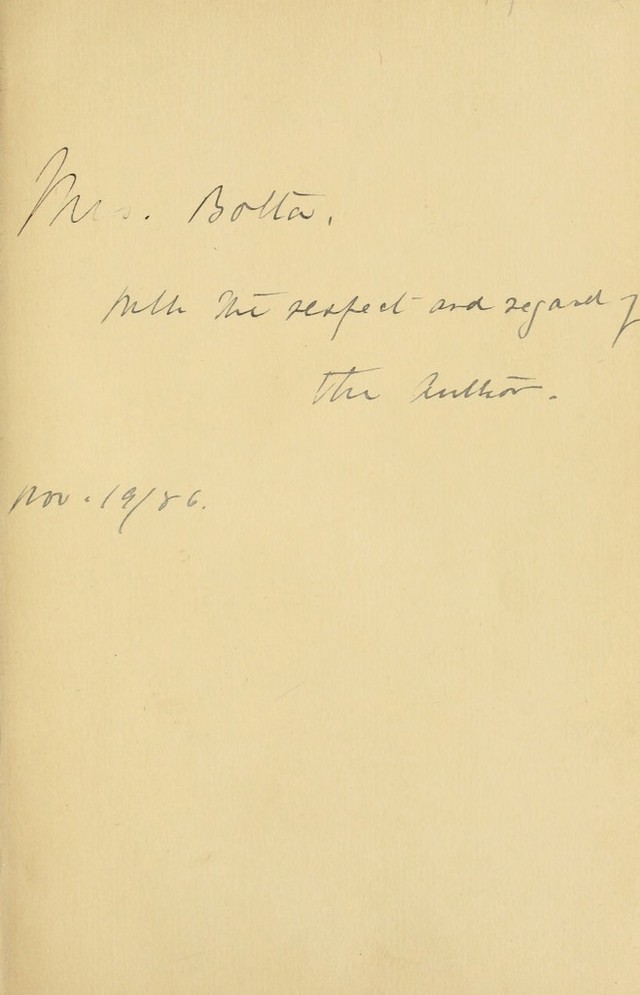 Mrs. Botta.
With the respect and regard of
the Author.
Nov. 19/86.